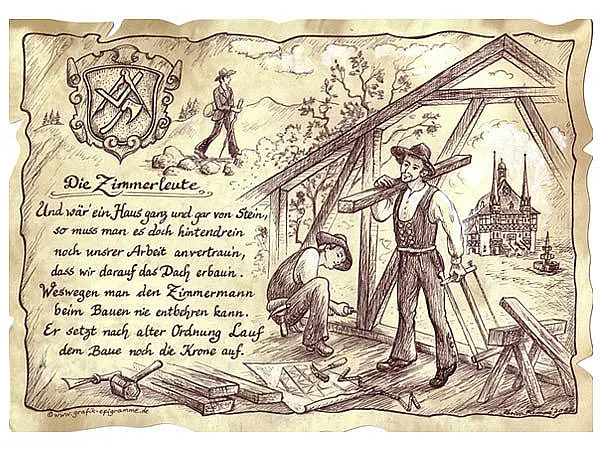 Die Zimmerleute
Und wär' ein Haus ganz und gar von Stein,
so muss man es doch hintendrein
noch unsrer Arbeit anvertraun,
dass wir darauf das Dach erbaun.
Weswegen man den Zimmermann
beim Bauen nie entbehren kann.
Er setzt nach alter Ordnung Lauf
dem Baue noch die Krone auf.
©www.grafik-epigramme.de